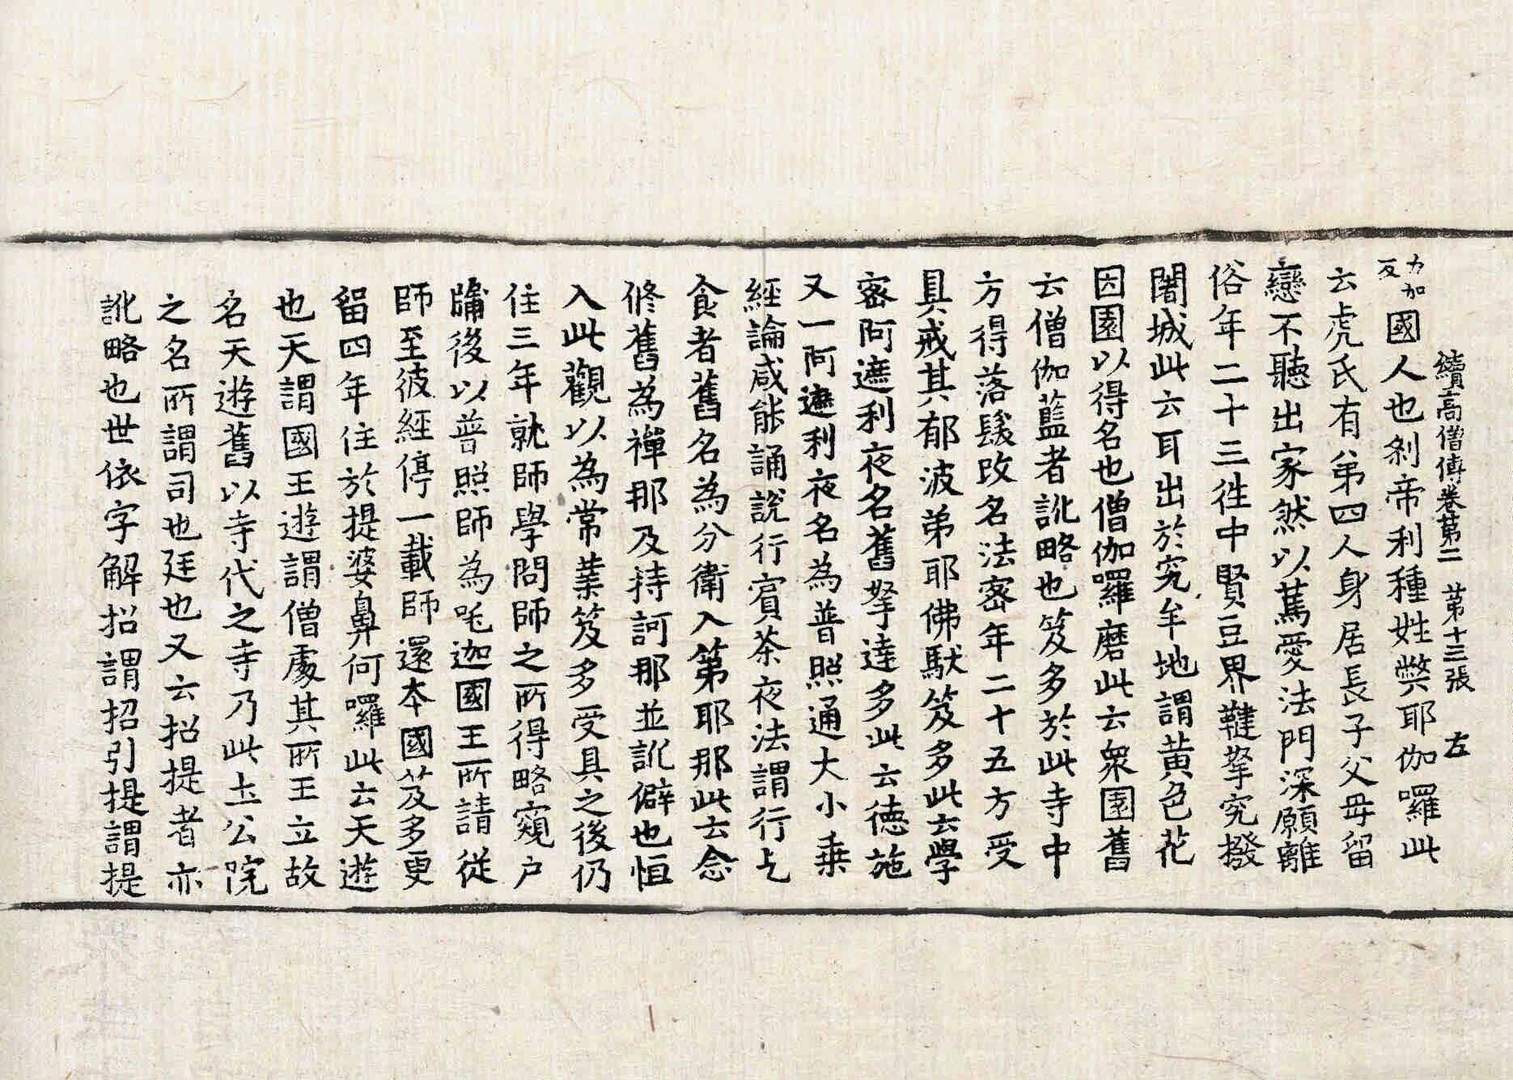 續高僧傳卷第二　第十三張　左
力加反國人也刹帝利種姓弊耶伽囉此
云虎氏有弟四人身居長子父母留
戀不聽出家然以篤愛法門深願離
俗年二十三徃中賢豆界鞬拏究撥
闍城此云耳出於究牟地謂黄色花
因園以得名也僧伽囉磨此云衆園舊
云僧伽藍者訛略也笈多於此寺中
方得落髮改名法密年二十五方受
具戒其郁波弟耶佛馱笈多此云學
密阿遮利夜名舊拏達多此云德施
又一阿遮利夜名為普照通大小乗
經論咸能誦説行賔茶夜法謂行乞
食者舊名為分衛入第耶那此云念
修舊為禪那及持訶那並訛僻也恒
入此觀以為常業笈多受具之後仍
住三年就師學問師之所得略窺户
牖後以普照師為吒迦國王所請從
師至彼經停一載師還本國笈多更
留四年住於提婆鼻何囉此云天遊
也天謂國王遊謂僧處其所王立故
名天遊舊以寺代之寺乃此土公院
之名所謂司也廷也又云招提者亦
訛略也世依字解招謂招引提謂提